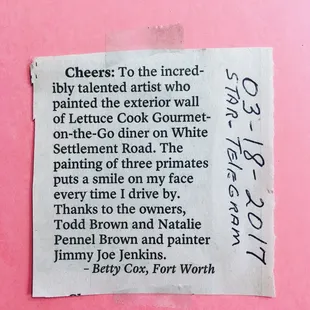 Cheers: To the incred-
ibly talented artist who
painted the exterior wall
of Lettuce Cook Gourmet-
on-the-Go diner on White
Settlement Road. The
painting of three primates
puts a smile on my face
every time I drive by.
Thanks to the owners,
Todd Brown and Natalie
Pennel Brown and painter
Jimmy Joe Jenkins.
– Betty Cox, Fort Worth
03-18-2017
STAR-TELEGRAM